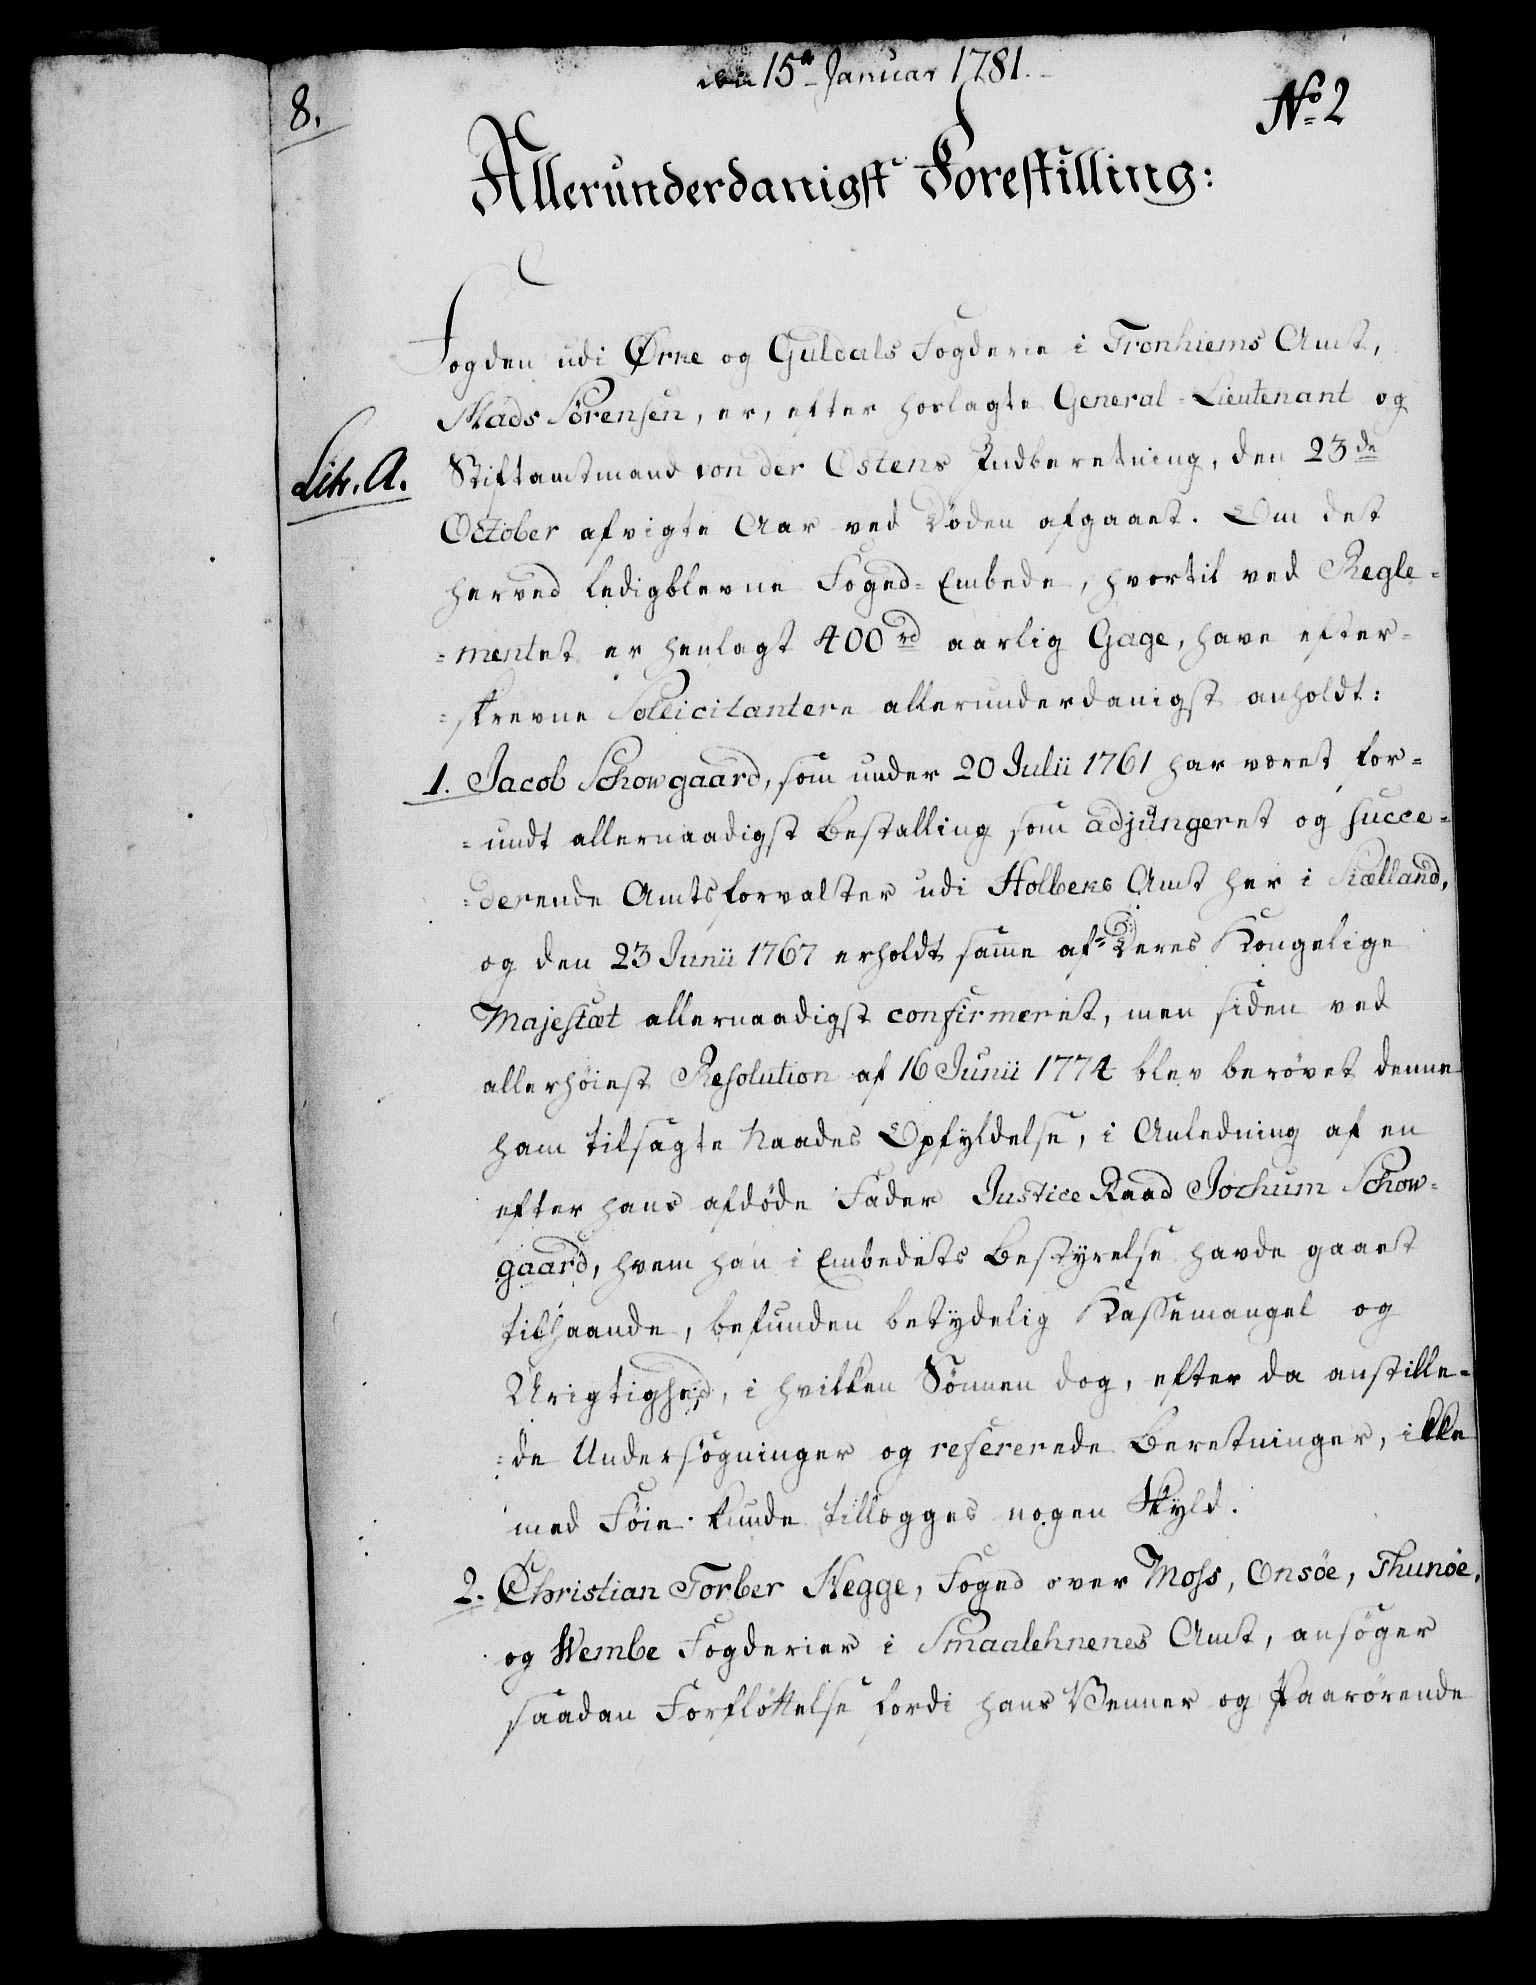 den 15de Januar 1781.
8.
No. 2
Allerunderdanigst Forestilling:
Fogden udi Ørke og Guldals Fogderie i Tronhiems Amt,
Mads Sörensen, er, efter hoslagte General-Lieutenant og
Litr. A.
Stiftamtmand von der Ostens Indberetning, den 23de
October afvigte Aar ved Döden afgaaet. Om det
herved ledigblevne Foged-Embede, hvortil ved Regle-
=mentet er henlagt 400 rd aarlig Gage, have efter-
=skrevne Sollicitantere allerunderdanigst anholdt:
1. Jacob Schowgaard, som under 20 Julii 1761 har været for-
=undt allernaadigst Bestalling som adjungeret og succe-
=derende Amtsforvalter udi Holbeks Amt her i Siælland,
og den 23 Junii 1767 erholdt samme af Deres Kongelige
Majestæt allernaadigst confirmeret, men siden ved
allerhöiest Resolution af 16 Junii 1774 blev berövet denne
ham tilsagte Naades Opfyldelse, i Anledning af en
efter hans afdöde Fader Justice Raad Jochum Schow-
gaard, hvem han i Embedets Bestyrelse havde gaaet
tilhaande, befunden betydelig Kassemangel og
Urigtighed, i hvilken Sönnen dog, efter da anstille-
=de Undersögninger og refererede Beretninger, ikke
med Föie kunde tillægges nogen Skyld.
2. Christian Torber Hegge, Foged over Moss, Onsöe, Thunöe,
og Wembe Fogderier i Smaalehnenes Amt, ansöger
saadan Forflöttelse fordi hans Venner og Paarörende